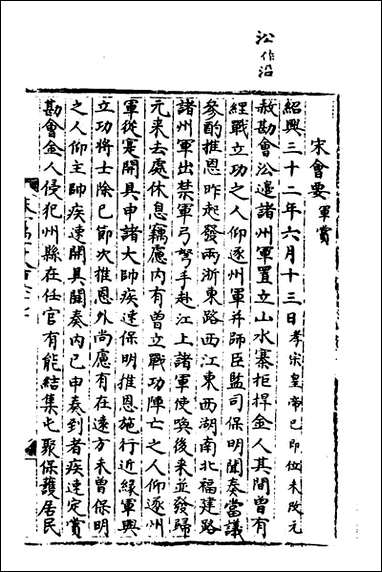 㳂作沿
宋會要 軍賞
紹興三十二年六月十三日孝宗皇帝已即位未改元
赦勘會㳂邊諸州軍置立山水寨拒捍金人其間曾有
經戰立功之人仰逐州軍并帥臣監司保明聞奏當議
參酌推恩昨起發兩浙東路西江東西湖南北福建路
諸州軍出禁軍弓弩手赴江上諸軍使喚後來並發歸
元來去處休息竊慮內有曾立戰功陣亡之人仰逐州
軍從實開具申諸大帥疾速保明推恩施行近緣軍興
立功將士除已節次推恩外尚慮有在遠方未曾保明
之人仰主帥疾速開具聞奏內已申奏到者疾速定賞
勘會金人侵犯州縣在任官有能結集屯聚保護居民